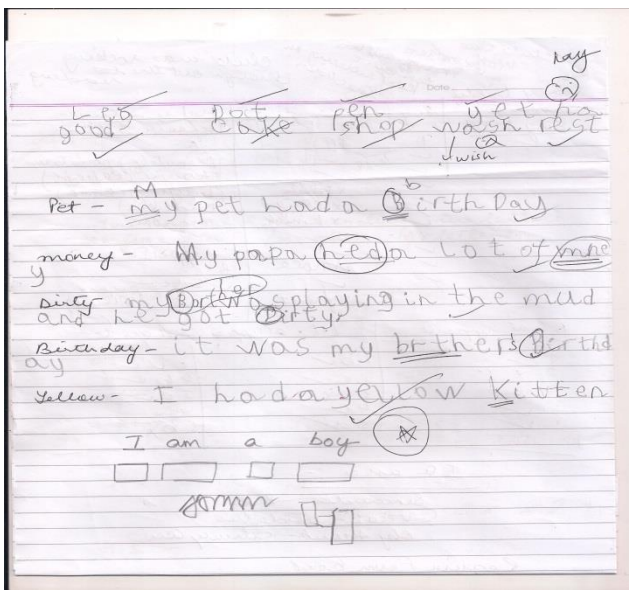 ray
Leg pat pen yet ha
good cake shop wash rest
wish
M b
Pet - my pet had a Birth Day
money - My papa hed a lot of mne
y
Dirty my was playing in the mud
and he got Dirty.
Birthday - it was my brther's Birthd
ay
Yellow - I had a yellow Kitten
I am a boy